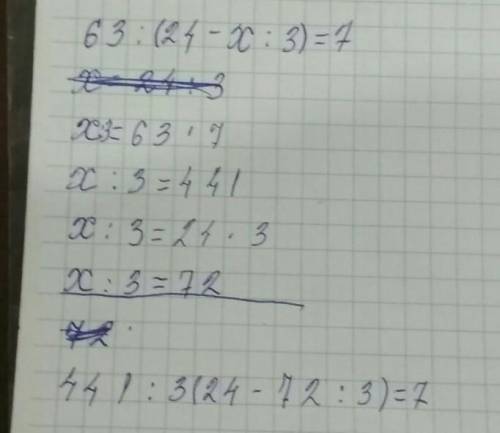 63 : (24 - x : 3) = 7
x = 24 : 3
x3 = 63 · 7
x : 3 = 441
x : 3 = 24 · 3
x : 3 = 72
72
441 : 3(24 - 72 : 3) = 7